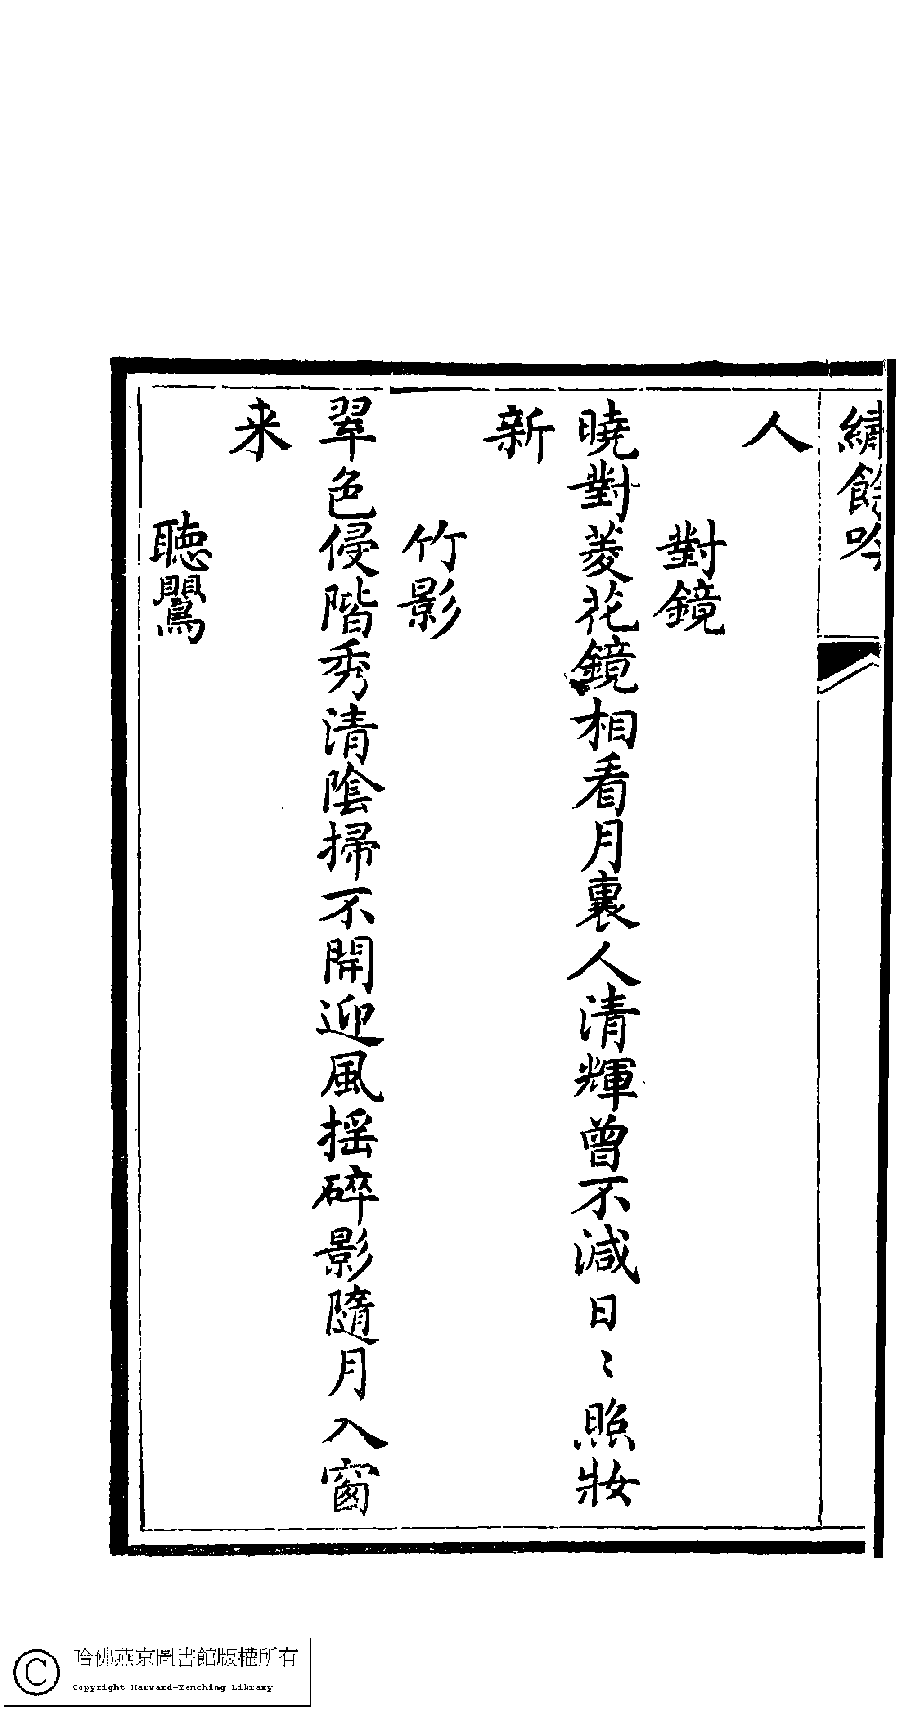 繡餘吟
人
對鏡
曉對菱花鏡相看月裏人清輝曾不減日〻照妝
新
竹影
翠色侵階秀清陰掃不開迎風揺碎影隨月入窗
来
聽鶯
哈佛燕京圖書館版權所有
Copyright Harvard-Yenching Library